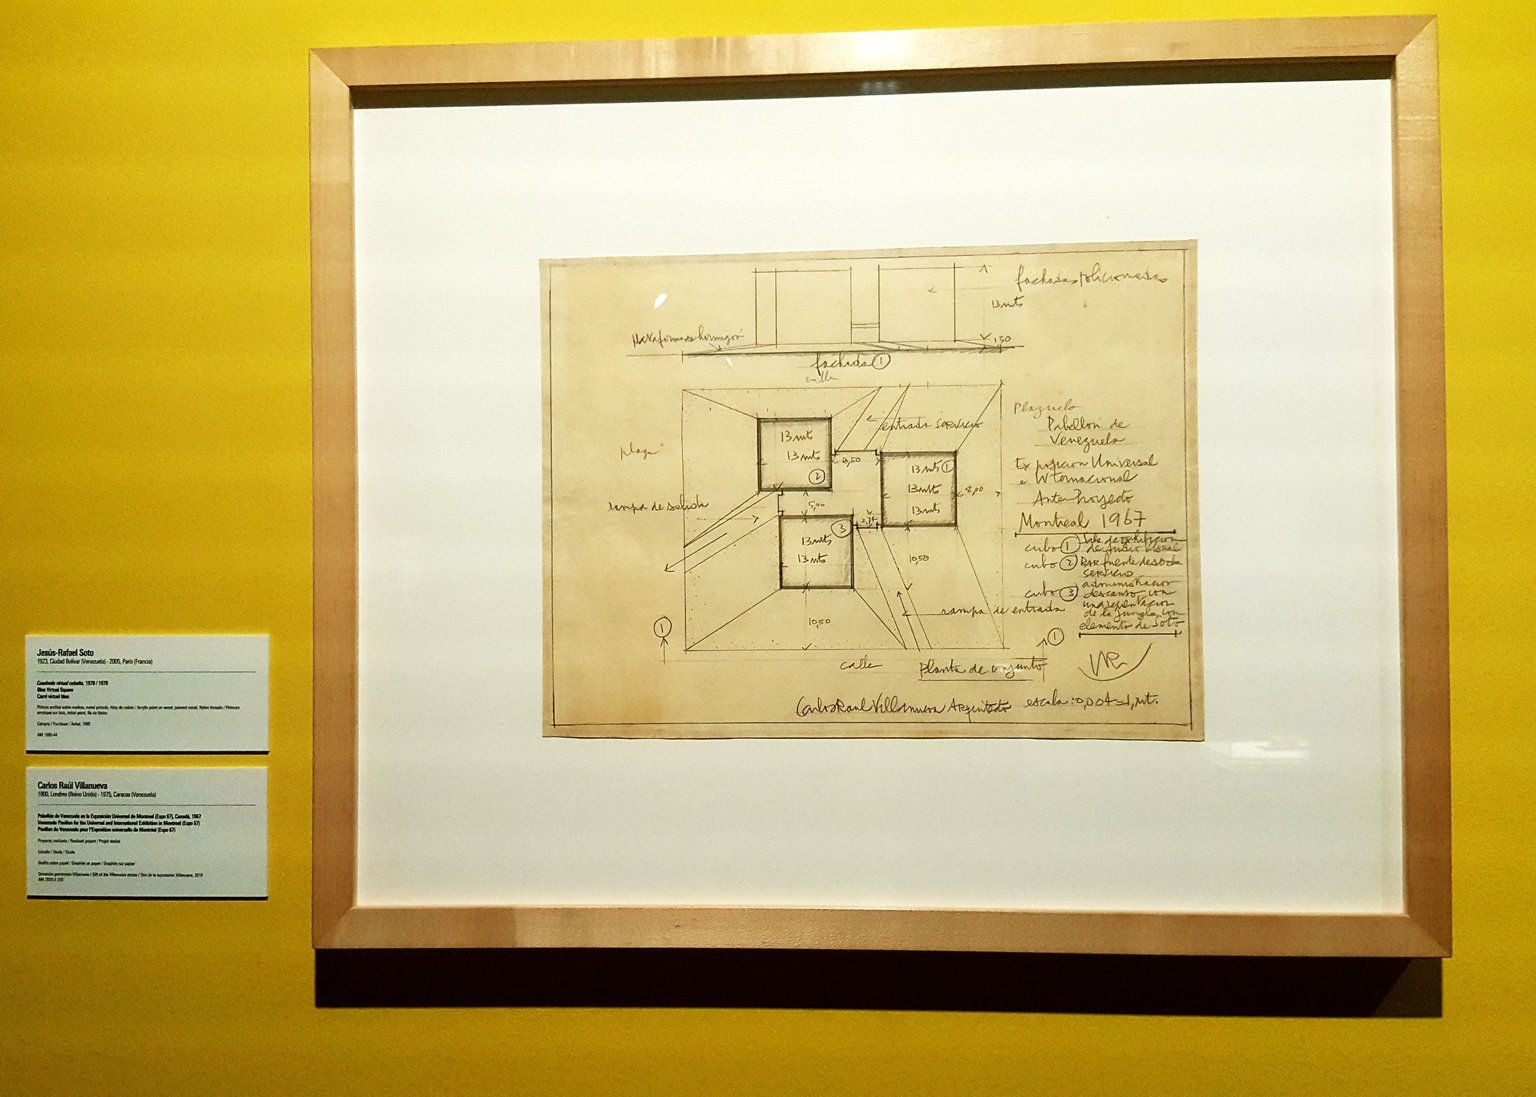 Jesús-Rafael Soto
1923, Ciudad Bolívar (Venezuela) - 2005, París (Francia)
Cuadrado virtual cobalto, 1978 / 1978
Blue Virtual Square
Carré virtuel bleu
Carlos Raúl Villanueva
1900, Londres (Reino Unido) - 1975, Caracas (Venezuela)
Pabellón de Venezuela en la Exposición Universal de Montreal (Expo 67), Canadá, 1967
Venezuela Pavilion for the Universal and International Exhibition in Montreal (Expo 67)
Pavillon du Venezuela pour l'Exposition universelle de Montréal (Expo 67)
Proyecto realizado / Realised project / Projet réalisé
Estudio / Study / Étude
Grafito sobre papel / Graphite on paper / Graphite sur papier
fachadas policromadas
13 mts
plataforma de hormigón
1,50
fachada 1
calle
entrada servicio
13 mts
13 mts
2
3,50
13 mts 1
13 mts
13 mts
plaza
rampa de salida
5,00
13 mts
13 mts
3
10,50
10,50
rampa de entrada
1
1
calle
planta de conjunto
Plazuela
Pabellon de
Venezuela
Exposicion Universal
e Internacional
Ante-Proyecto
Montreal 1967
cubo 1 Sala de exhibicion
de audio visual
cubo 2 Bar fuente de soda
servicio
cubo 3 administracion
descanso, con
una representacion
de la jungla con
elemento de Soto
Carlos Raul Villanueva Arquitecto escala: 0,004 = 1, mt.